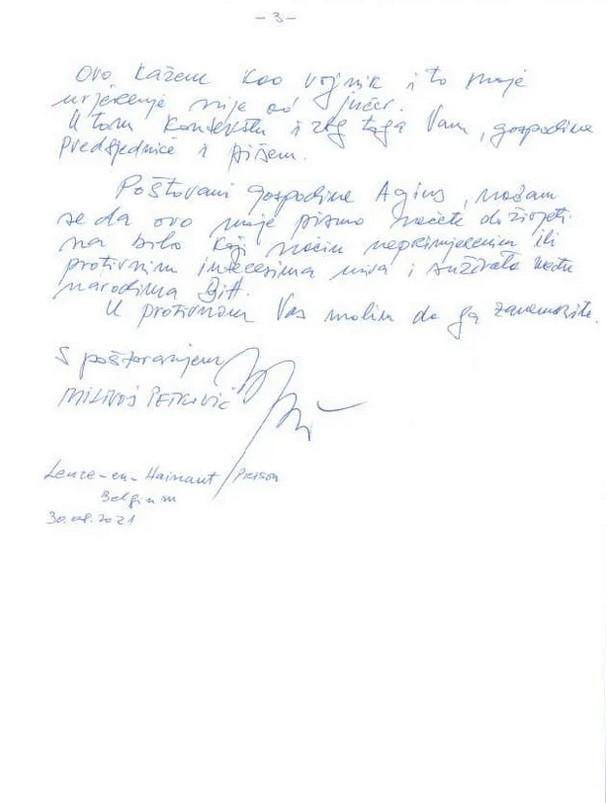 - 3 -
Ovo kažem kao vojnik i to moje
uvjerenje nije od jučer.
U tom kontekstu i zbog toga Vam, gospodine
predsjedniče i pišem.
Poštovani gospodine Agius, nadam
se da ovo moje pismo nećete doživjeti
na bilo koji način neprimjerenim ili
protivnim interesima mira i suživota među
narodima BiH.
U protivnom Vas molim da ga zanemarite.
S poštovanjem
MILIVOJ PETKOVIĆ
Leuze-en-Hainaut / Prison
Belgium
30.08.2021